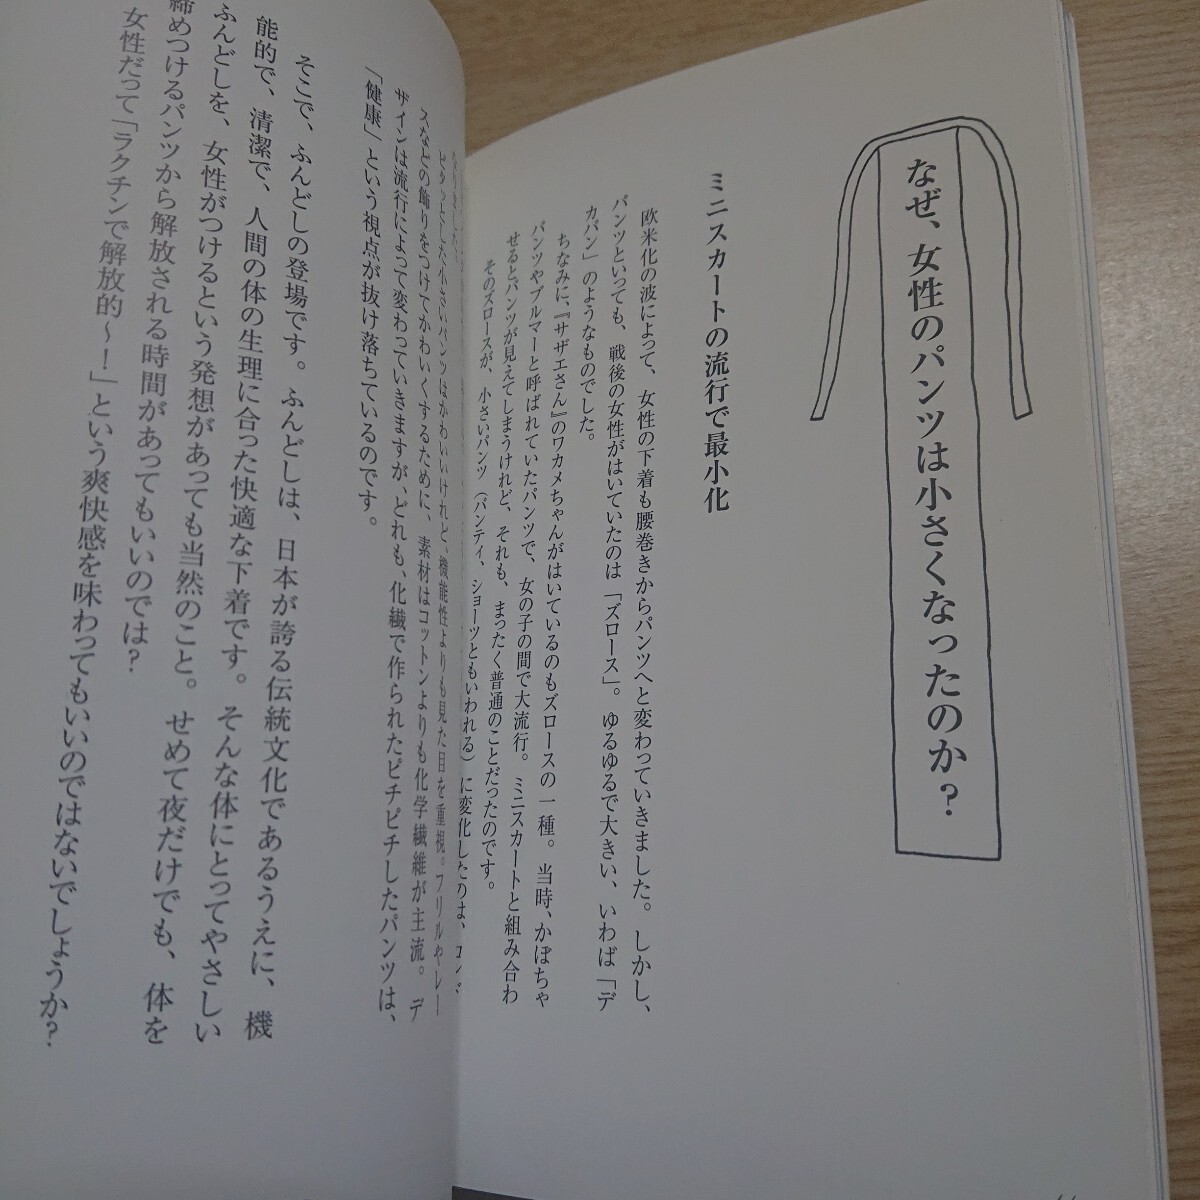 なぜ、女性のパンツは小さくなったのか？
ミニスカートの流行で最小化
欧米化の波によって、女性の下着も腰巻きからパンツへと変わっていきました。しかし、
パンツといっても、戦後の女性がはいていたのは「ズロース」。ゆるゆるで大きい、いわば「デ
カパン」のようなものでした。
ちなみに、『サザエさん』のワカメちゃんがはいているのもズロースの一種。当時、かぼちゃ
パンツやブルマーと呼ばれていたパンツで、女の子の間で大流行。ミニスカートと組み合わ
せるとパンツが見えてしまうけれど、それも、まったく普通のことだったのです。
そのズロースが、小さいパンツ（パンティ、ショーツともいわれる）に変化したのは、
ピタッとした小さいパンツはかわいいけれど、機能性よりも見た目を重視。フリルやレー
スなどの飾りをつけてかわいくするために、素材はコットンよりも化学繊維が主流。デ
ザインは流行によって変わっていきますが、どれも、化繊で作られたピチピチしたパンツは、
「健康」という視点が抜け落ちているのです。
そこで、ふんどしの登場です。ふんどしは、日本が誇る伝統文化であるうえに、機
能的で、清潔で、人間の体の生理に合った快適な下着です。そんな体にとってやさしい
ふんどしを、女性がつけるという発想があっても当然のこと。せめて夜だけでも、体を
締めつけるパンツから解放される時間があってもいいのでは？
女性だって「ラクチンで解放的～！」という爽快感を味わってもいいのではないでしょうか？